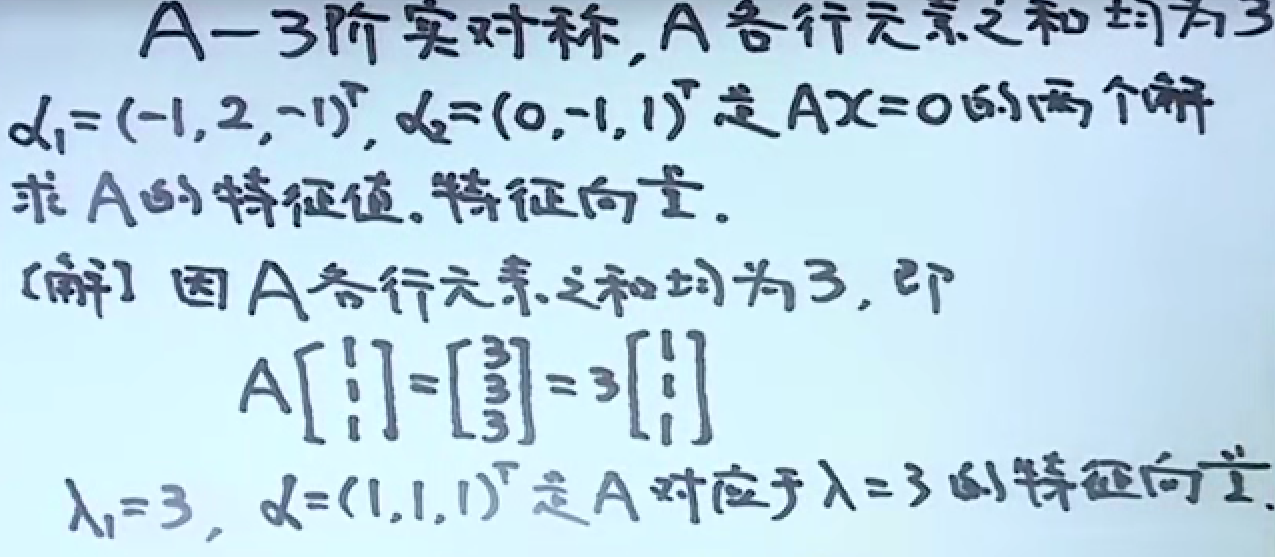 A－3阶实对称, A各行元素之和均为3
α₁=(-1,2,-1)ᵀ, α₂=(0,-1,1)ᵀ是Ax=0的两个解
求A的特征值。特征向量.
[解] 因A各行元素之和均为3, 即
A[1 1 1]=[3 3 3]=3[1 1 1]
λ₁=3, α=(1,1,1)ᵀ是A对应于λ=3的特征向量.